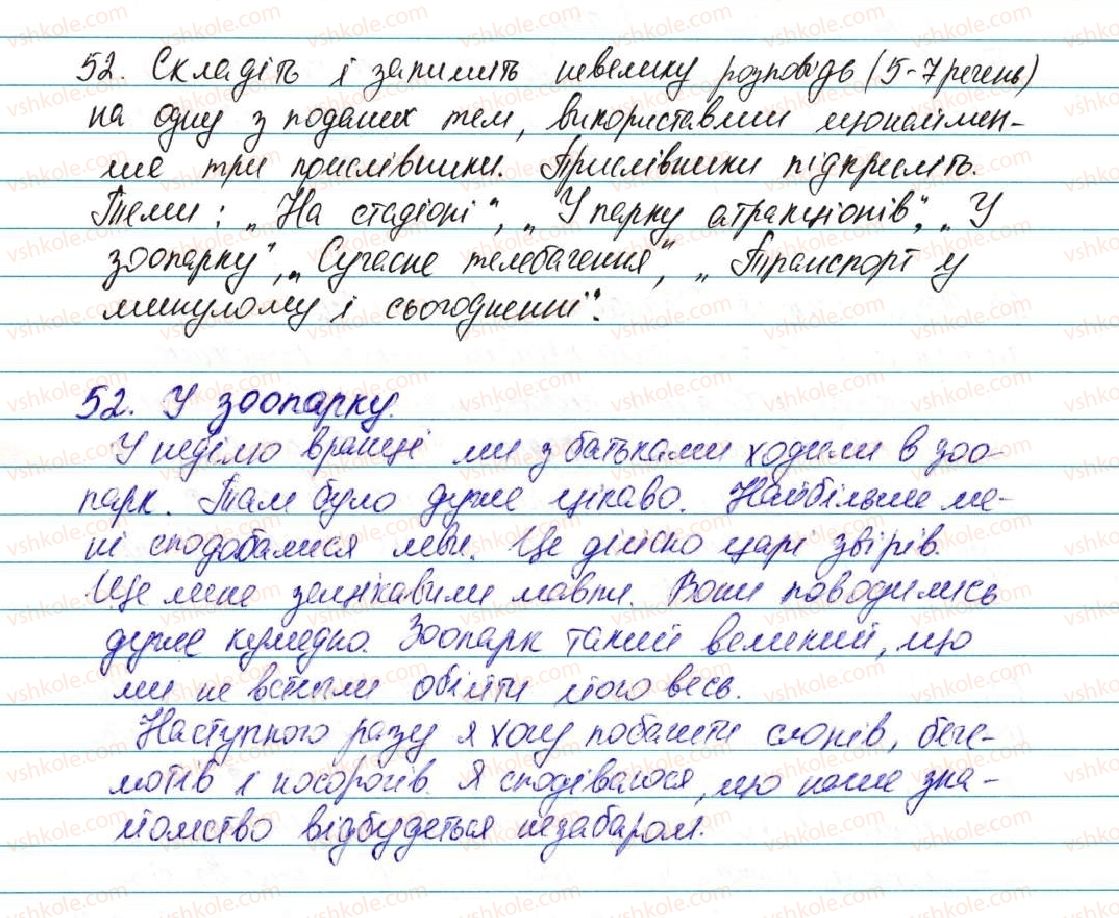 52. Складіть і запишіть невелику розповідь (5-7 речень)
на одну з поданих тем, використавши щонаймен-
ше три прислівники. Прислівники підкресліть.
Теми: „На стадіоні", „У парку атракціонів", „У
зоопарку", „Сучасне телебачення", „Транспорт у
минулому і сьогоденні".
52. У зоопарку.
У неділю вранці ми з батьками ходили в зоо-
парк. Там було дуже цікаво. Найбільше ме-
ні сподобалися леви. Це дійсно царі звірів.
Ще мене зацікавили мавпи. Вони поводились
дуже кумедно. Зоопарк такий великий, що
ми не встигли обійти його весь.
Наступного разу я хочу побачити слонів, беге-
мотів і носорогів. Я сподіваюся, що наше зна-
йомство відбудеться незабаром.